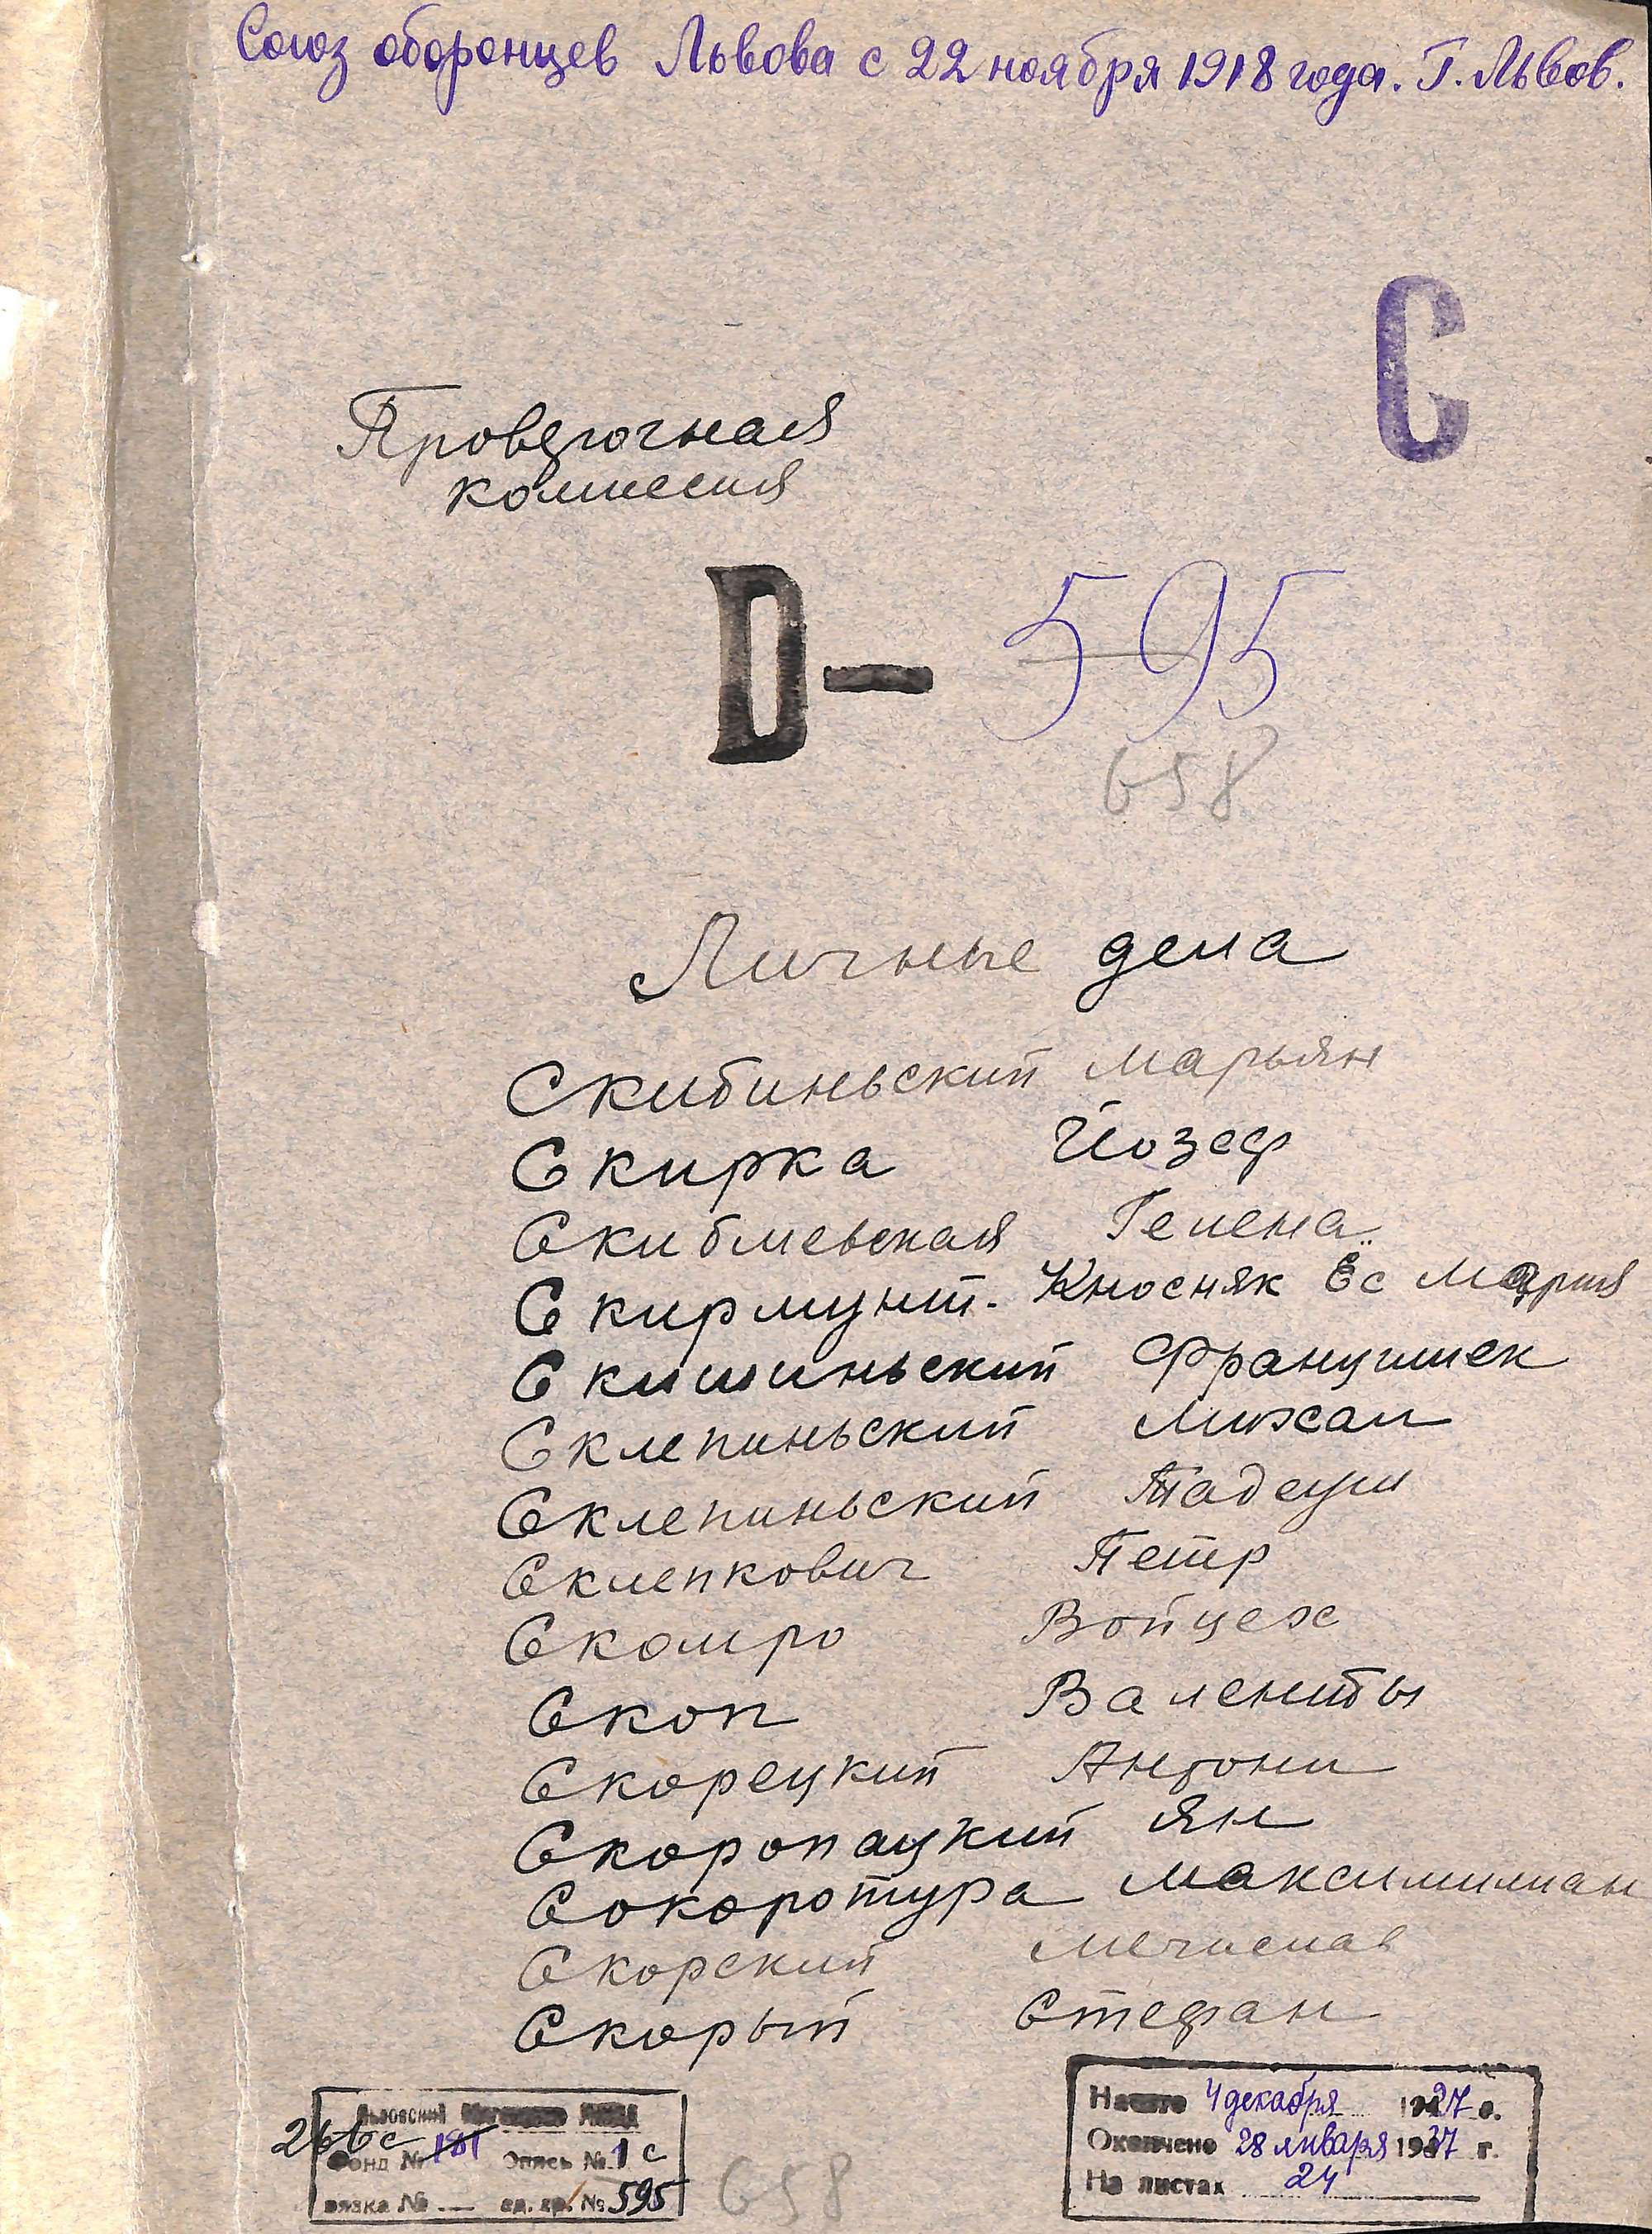 Союз оборонцев Львова с 22 ноября 1918 года. Г. Львов.
С
Проверочная
комиссия
D— 595
658
Личные дела
Скибиньский Марьян
Скирка Йозеф
Скибмевская Гелена
Скирмунт- Кносняк Ёс Мария
Скишиньский Францишек
Склепиньский Михал
Склепиньский Тадеуш
Склепкович Петр
Скомро Войцех
Скоп Валенты
Скорецкий Антони
Скоропацкий Ян
Сокоротура Максимилиан
Скорский Мечислав
Скорый Стефан
Львовский
266с Фонд № 181 Опись № 1с
вязка № — ед. хр. № 595
658
Начато 4 декабря 1927 г.
Окончено 28 января 1937 г.
На листах 24